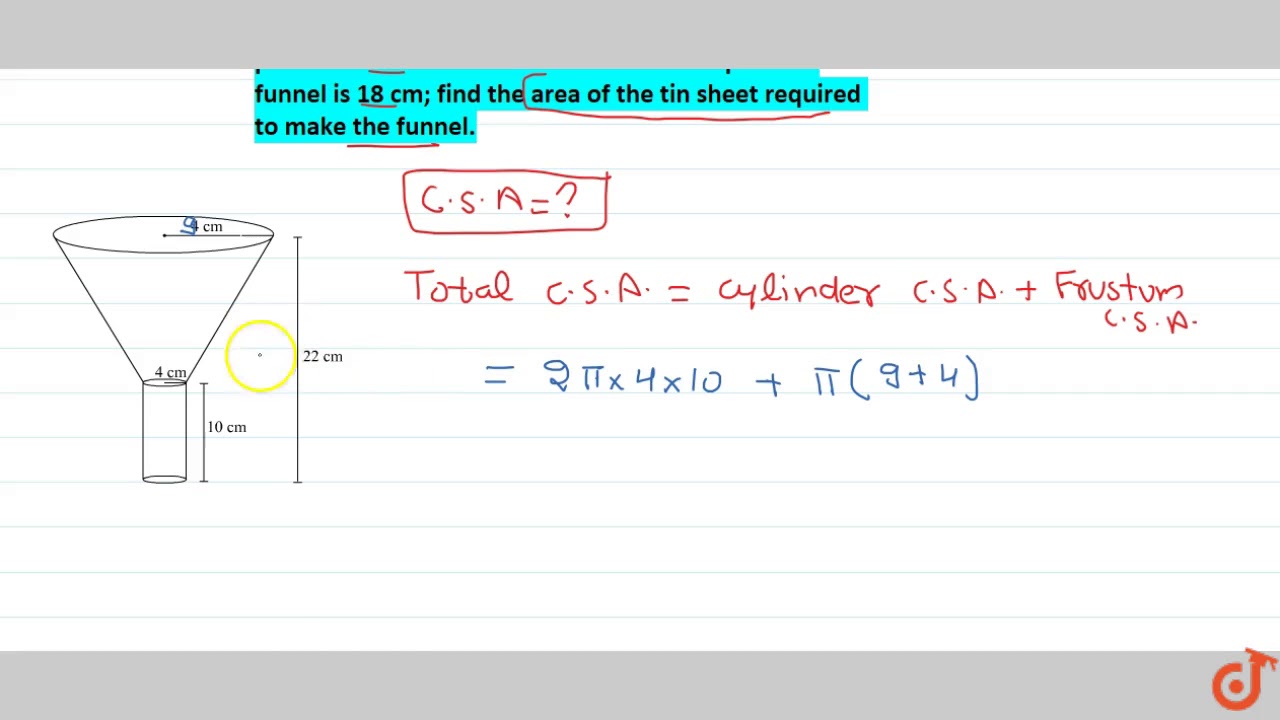 funnel is 18 cm; find the area of the tin sheet required
to make the funnel.
C.S.A = ?
9 cm
Total C.S.A. = cylinder C.S.A. + Frustum
C.S.A.
22 cm
4 cm
= 2π×4×10 + π(9+4)
10 cm